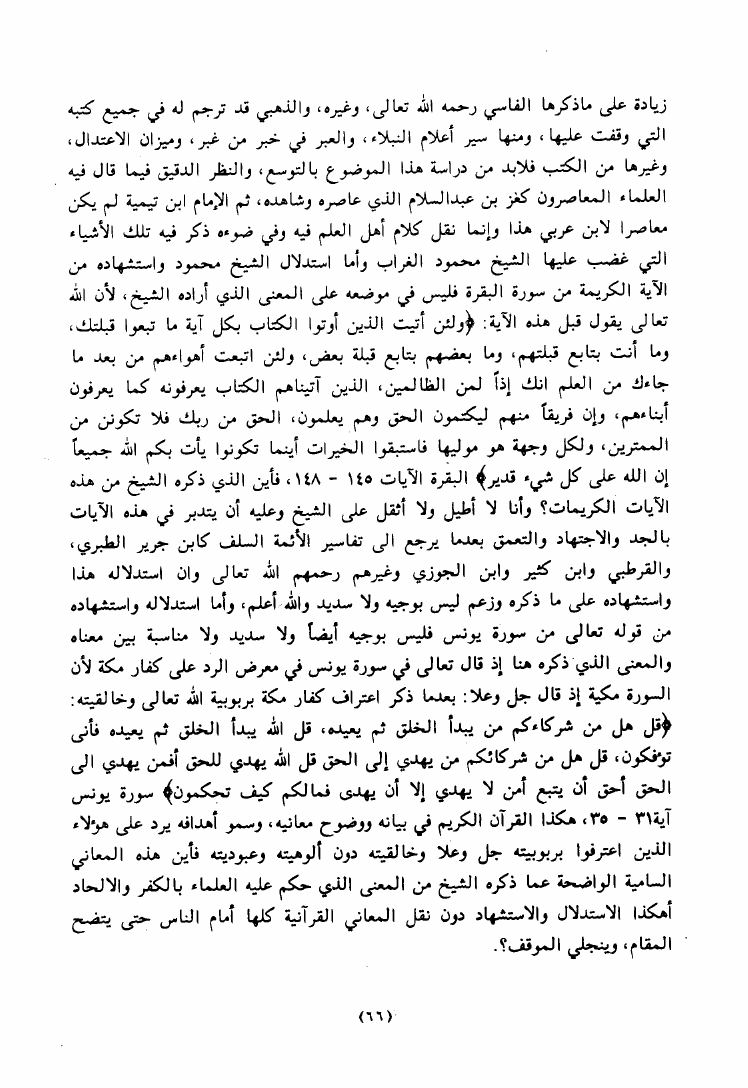 زيادة على ماذكرها الفاسي رحمه الله تعالى، وغيره، والذهبي قد ترجم له في جميع كتبه
التي وقفت عليها، ومنها سير أعلام النبلاء، والعبر في خبر من غبر، وميزان الاعتدال،
وغيرها من الكتب فلابد من دراسة هذا الموضوع بالتوسع، والنظر الدقيق فيما قال فيه
العلماء المعاصرون كغز بن عبدالسلام الذي عاصره وشاهده، ثم الإمام ابن تيمية لم يكن
معاصرا لابن عربي هذا وإنما نقل كلام أهل العلم فيه وفي ضوءه ذكر فيه تلك الأشياء
التي غضب عليها الشيخ محمود الغراب وأما استدلال الشيخ محمود واستشهاده من
الآية الكريمة من سورة البقرة فليس في موضعه على المعنى الذي أراده الشيخ، لأن الله
تعالى يقول قبل هذه الآية: ﴿ولئن أتيت الذين أوتوا الكتاب بكل آية ما تبعوا قبلتك،
وما أنت بتابع قبلتهم، وما بعضهم بتابع قبلة بعض، ولئن اتبعت أهواءهم من بعد ما
جاءك من العلم انك إذاً لمن الظالمين، الذين آتيناهم الكتاب يعرفونه كما يعرفون
أبناءهم، وإن فريقاً منهم ليكتمون الحق وهم يعلمون، الحق من ربك فلا تكونن من
الممترين، ولكل وجهة هو موليها فاستبقوا الخيرات أينما تكونوا يأت بكم الله جميعاً
إن الله على كل شيء قدير﴾ البقرة الآيات ١٤٥ - ١٤٨، فأين الذي ذكره الشيخ من هذه
الآيات الكريمات؟ وأنا لا أطيل ولا أثقل على الشيخ وعليه أن يتدبر في هذه الآيات
بالجد والاجتهاد والتعمق بعدما يرجع الى تفاسير الأئمة السلف كابن جرير الطبري،
والقرطبي وابن كثير وابن الجوزي وغيرهم رحمهم الله تعالى وان استدلاله هذا
واستشهاده على ما ذكره وزعم ليس بوجيه ولا سديد والله أعلم، وأما استدلاله واستشهاده
من قوله تعالى من سورة يونس فليس بوجيه أيضاً ولا سديد ولا مناسبة بين معناه
والمعنى الذي ذكره هنا إذ قال تعالى في سورة يونس في معرض الرد على كفار مكة لأن
السورة مكية إذ قال جل وعلا: بعدما ذكر اعتراف كفار مكة بربوبية الله تعالى وخالقيته:
﴿قل هل من شركاءكم من يبدأ الخلق ثم يعيده، قل الله يبدأ الخلق ثم يعيده فأنى
تؤفكون، قل هل من شركائكم من يهدي إلى الحق قل الله يهدي للحق أفمن يهدي الى
الحق أحق أن يتبع أمن لا يهدي إلا أن يهدى فمالكم كيف تحكمون﴾ سورة يونس
آية٣١ - ٣٥، هكذا القرآن الكريم في بيانه ووضوح معانيه، وسمو أهدافه يرد على هؤلاء
الذين اعترفوا بربوبيته جل وعلا وخالقيته دون ألوهيته وعبوديته فأين هذه المعاني
السامية الواضحة عما ذكره الشيخ من المعنى الذي حكم عليه العلماء بالكفر والالحاد
أهكذا الاستدلال والاستشهاد دون نقل المعاني القرآنية كلها أمام الناس حتى يتضح
المقام، وينجلي الموقف؟.
(٦٦)